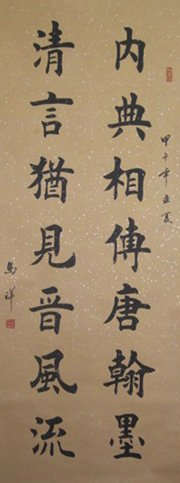 内典相傳唐翰墨
甲午年孟夏
清言猶見晋風流